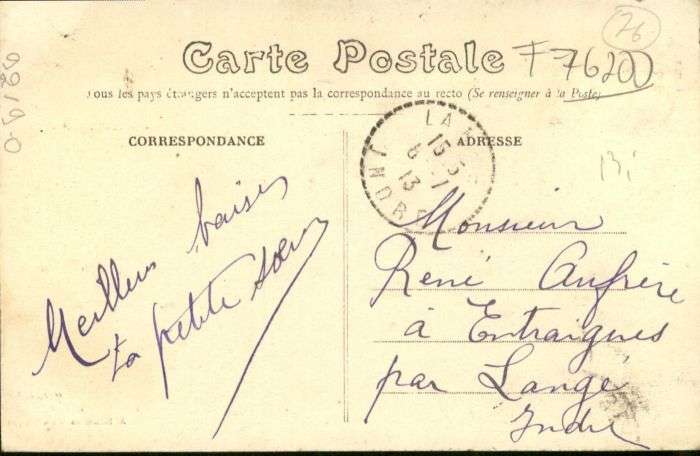 76
Carte Postale
F 76200
Tous les pays étrangers n'acceptent pas la correspondance au recto (Se renseigner à la Poste)
CORRESPONDANCE
ADRESSE
15
8 -7
13
INDRE
Meilleurs baisers
ta petite sœur
Monsieur
René Aufrère
à Entraigues
par Langé
Indre